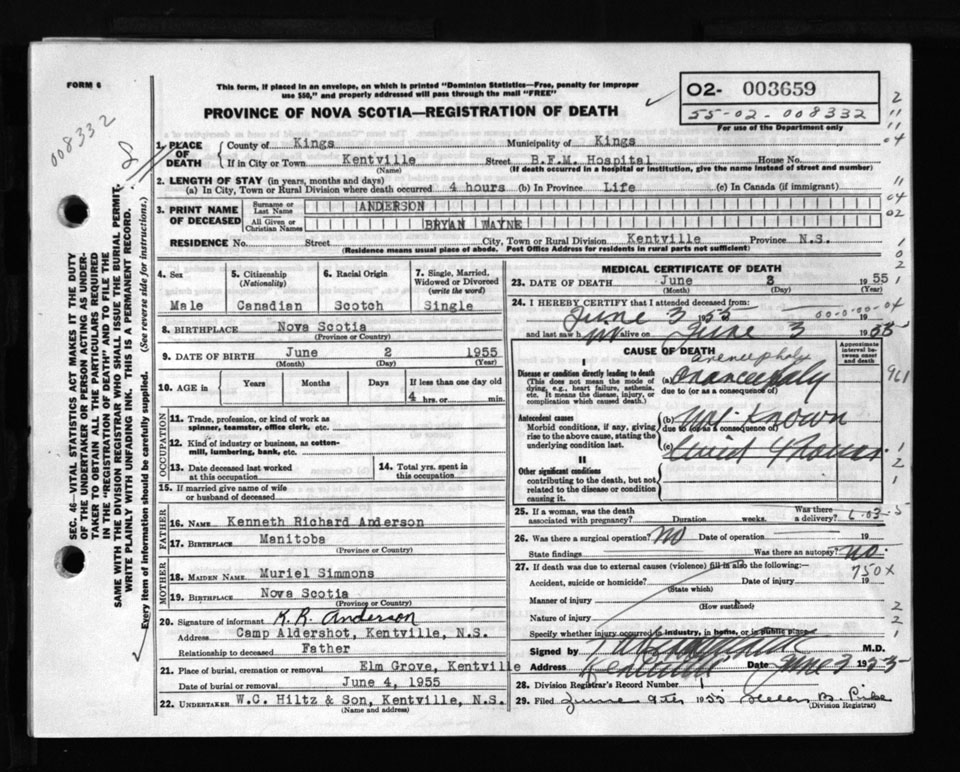 FORM 6
This form, if placed in an envelope, on which is printed "Dominion Statistics—Free, penalty for improper
use $50," and properly addressed will pass through the mail "FREE"
PROVINCE OF NOVA SCOTIA—REGISTRATION OF DEATH
O2- 003659
55-02-008332
For use of the Department only
008332
1. PLACE OF DEATH
County of Kings Municipality of Kings
If in City or Town Kentville Street B.F.M. Hospital House No.
(Name) (If death occurred in a hospital or institution, give the name instead of street and number)
2. LENGTH OF STAY (in years, months and days)
(a) In City, Town or Rural Division where death occurred 4 hours (b) In Province Life (c) In Canada (if immigrant)
3. PRINT NAME OF DECEASED
Surname or Last Name ANDERSON
All Given or Christian Names BRYAN WAYNE
RESIDENCE No. Street City, Town or Rural Division Kentville Province N.S.
(Residence means usual place of abode. Post Office Address for residents in rural parts not sufficient)
4. Sex
Male
5. Citizenship
(Nationality)
Canadian
6. Racial Origin
Scotch
7. Single, Married,
Widowed or Divorced
(write the word)
Single
8. BIRTHPLACE Nova Scotia
(Province or Country)
9. DATE OF BIRTH June 2 1955
(Month) (Day) (Year)
10. AGE in Years Months Days If less than one day old
4 hrs. or min.
OCCUPATION
11. Trade, profession, or kind of work as
spinner, teamster, office clerk, etc.
12. Kind of industry or business, as cotton-
mill, lumbering, bank, etc.
13. Date deceased last worked
at this occupation
14. Total yrs. spent in
this occupation
15. If married give name of wife
or husband of deceased
FATHER
16. NAME Kenneth Richard Anderson
17. BIRTHPLACE Manitoba
(Province or Country)
MOTHER
18. MAIDEN NAME Muriel Simmons
19. BIRTHPLACE Nova Scotia
(Province or Country)
20. Signature of informant K. R. Anderson
Address Camp Aldershot, Kentville, N.S.
Relationship to deceased Father
21. Place of burial, cremation or removal Elm Grove, Kentville
Date of burial or removal June 4, 1955
22. UNDERTAKER W.C. Hiltz & Son, Kentville, N.S.
(Name and address)
MEDICAL CERTIFICATE OF DEATH
23. DATE OF DEATH June 3 1955
(Month) (Day) (Year)
24. I HEREBY CERTIFY that I attended deceased from:
June 3 1955 19
and last saw h m alive on June 3 1955
CAUSE OF DEATH
Approximate interval between onset and death
I
Disease or condition directly leading to death
(This does not mean the mode of
dying, e.g., heart failure, asthenia,
etc. It means the disease, injury, or
complication which caused death.)
(a)
due to (or as a consequence of)
Antecedent causes
Morbid conditions, if any, giving
rise to the above cause, stating the
underlying condition last.
(b) Not Known
due to (or as a consequence of)
(c) Lived 4 hours.
II
Other significant conditions
contributing to the death, but not
related to the disease or condition
causing it.
25. If a woman, was the death
associated with pregnancy? Duration weeks. Was there a delivery?
26. Was there a surgical operation? No Date of operation 19
State findings Was there an autopsy? no.
27. If death was due to external causes (violence) fill in also the following:—
750X
Accident, suicide or homicide? Date of injury 19
(State which)
Manner of injury
(How sustained)
Nature of injury
Specify whether injury occurred in industry, in home, or in public place
Signed by M.D.
Address Kentville Date June 3 1955
28. Division Registrar's Record Number
29. Filed June 9th 1955 Helen B.
(Division Registrar)
SEC. 46—VITAL STATISTICS ACT MAKES IT THE DUTY
OF THE UNDERTAKER OR PERSON ACTING AS UNDER-
TAKER TO OBTAIN ALL THE PARTICULARS REQUIRED
IN THE "REGISTRATION OF DEATH" AND TO FILE THE
SAME WITH THE DIVISION REGISTRAR WHO SHALL ISSUE THE BURIAL PERMIT.
WRITE PLAINLY WITH UNFADING INK. THIS IS A PERMANENT RECORD.
Every item of information should be carefully supplied. (See reverse side for instructions.)